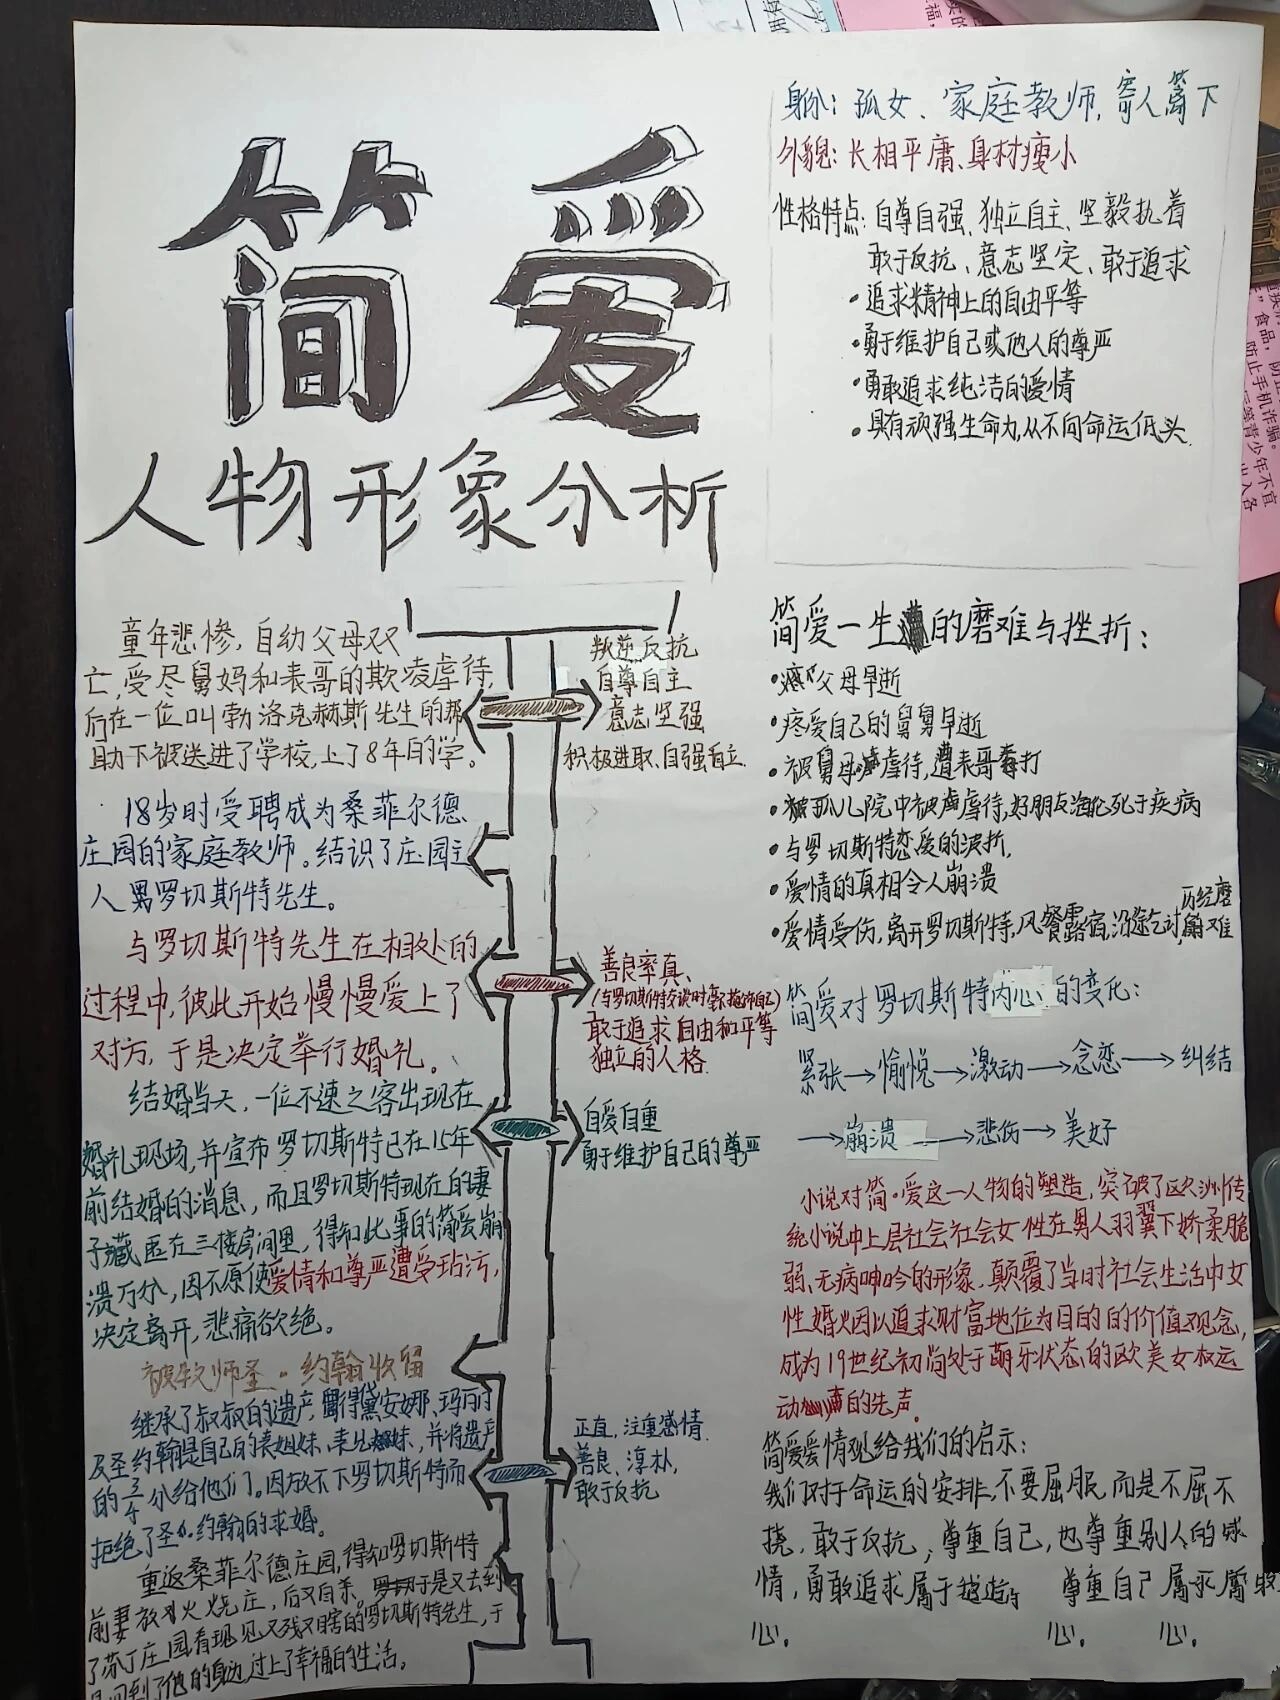 简爱
人物形象分析
身份：孤女、家庭教师，寄人篱下
外貌：长相平庸、身材瘦小
性格特点：自尊自强、独立自主、坚毅执着
敢于反抗、意志坚定、敢于追求
·追求精神上的自由平等
·勇于维护自己或他人的尊严
·勇敢追求纯洁的爱情
·具有顽强生命力，从不向命运低头
童年悲惨，自幼父母双
亡，受尽舅妈和表哥的欺凌虐待，
后在一位叫勃洛克赫斯先生的帮
助下被送进了学校，上了8年的学。
叛逆反抗
自尊自主
意志坚强
积极进取、自强自立
18岁时受聘成为桑菲尔德
庄园的家庭教师。结识了庄园主
人 罗切斯特先生。
与罗切斯特先生在相处的
过程中，彼此开始慢慢爱上了
对方，于是决定举行婚礼。
善良率真、
（与罗切斯特交谈时毫不掩饰自己）
敢于追求自由和平等
独立的人格
结婚当天，一位不速之客出现在
婚礼现场，并宣布罗切斯特已在15年
前结婚的消息，而且罗切斯特现在的妻
子藏匿在三楼房间里，得知此事的简爱崩
溃万分，因不原使爱情和尊严遭受玷污，
决定离开，悲痛欲绝。
自爱自重
勇于维护自己的尊严
被牧师圣·约翰收留
继承了叔叔的遗产，得黛安娜、玛丽
及圣约翰是自己的表姐妹、表妹，并将遗产
的3/4分给他们。因放不下罗切斯特而
拒绝了圣·约翰的求婚。
正直，注重感情
善良、淳朴，
敢于反抗
重返桑菲尔德庄园，得知罗切斯特
前妻放火烧庄，后又自杀。于是又去到
了芬丁庄园看现见又残又瞎的罗切斯特先生，于
是回到了他的身边过上了幸福的生活。
简爱一生的磨难与挫折：
·父母早逝
·疼爱自己的舅舅早逝
·被舅母虐待，遭表哥毒打
·孤儿院中被虐待，好朋友海伦死于疾病
·与罗切斯特恋爱的波折，
·爱情的真相令人崩溃
·爱情受伤，离开罗切斯特，风餐露宿，沿途乞讨，历经磨难
简爱对罗切斯特内心的变化：
紧张→愉悦→激动→念恋→纠结
→崩溃→悲伤→美好
小说对简·爱这一人物的塑造，突破了欧洲传
统小说中上层社会社会女性在男人羽翼下娇柔脆
弱、无病呻吟的形象，颠覆了当时社会生活中女
性婚姻以追求财富地位为目的的价值观念，
成为19世纪初尚处于萌芽状态的欧美女权运
动的先声。
简爱爱情观给我们的启示：
我们对于命运的安排，不要屈服，而是不屈不
挠，敢于反抗；尊重自己，也尊重别人的感
情，勇敢追求属于 尊重自己
心。 心。 心。